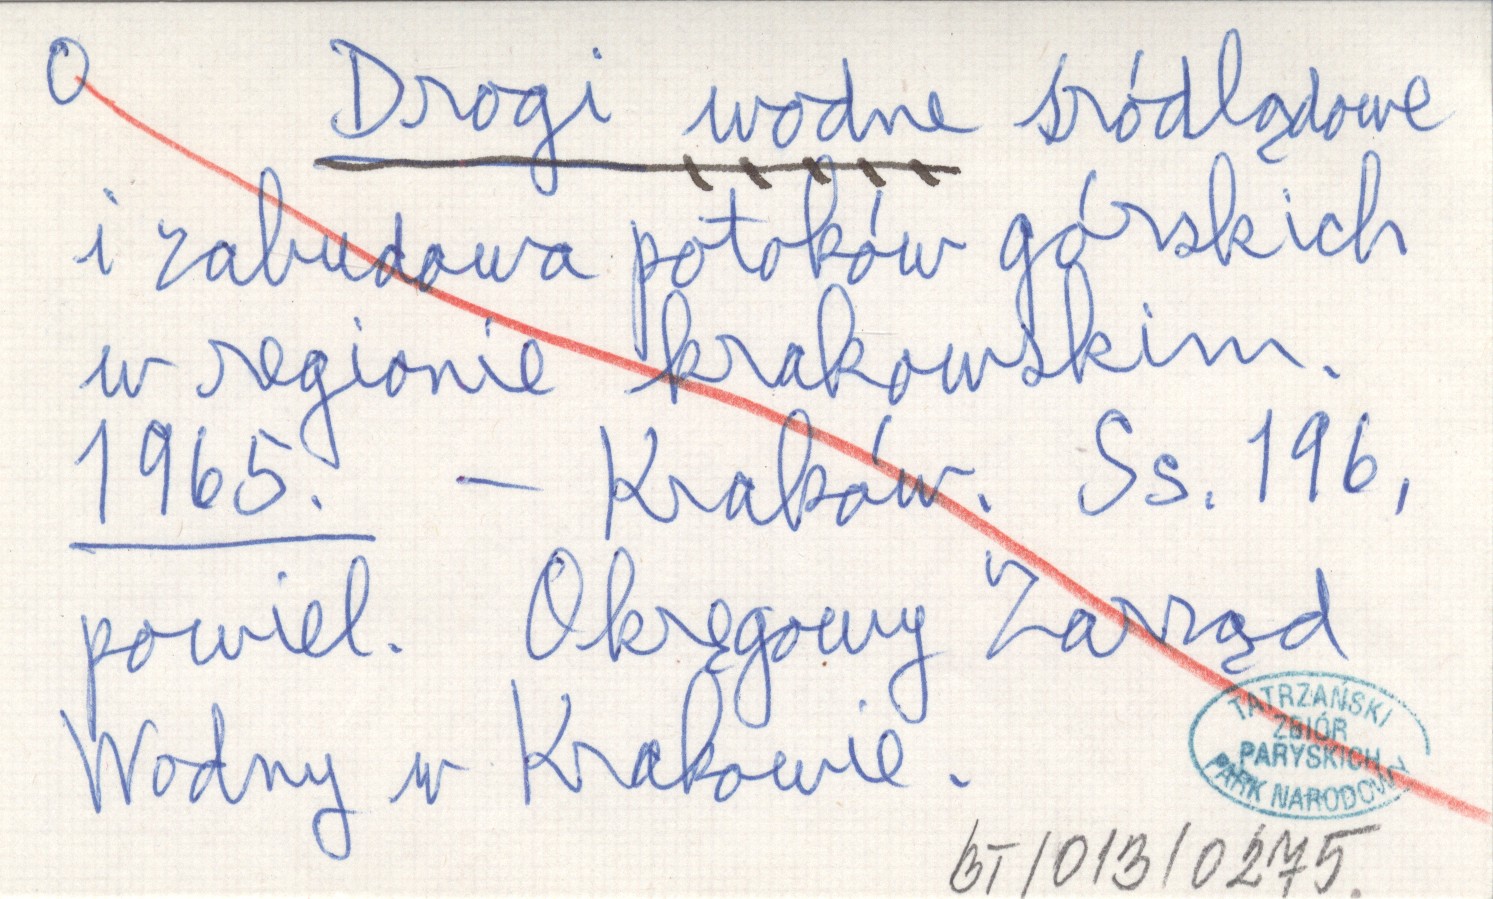 O Drogi wodne śródlądowe
i zabudowa potoków górskich
w regionie krakowskim.
1965. — Kraków. Ss. 196,
powiel. Okręgowy Zarząd
Wodny w Krakowie.
TATRZAŃSKI
ZBIÓR
PARYSKICH
PARK NARODOWY
BT/013/0275.